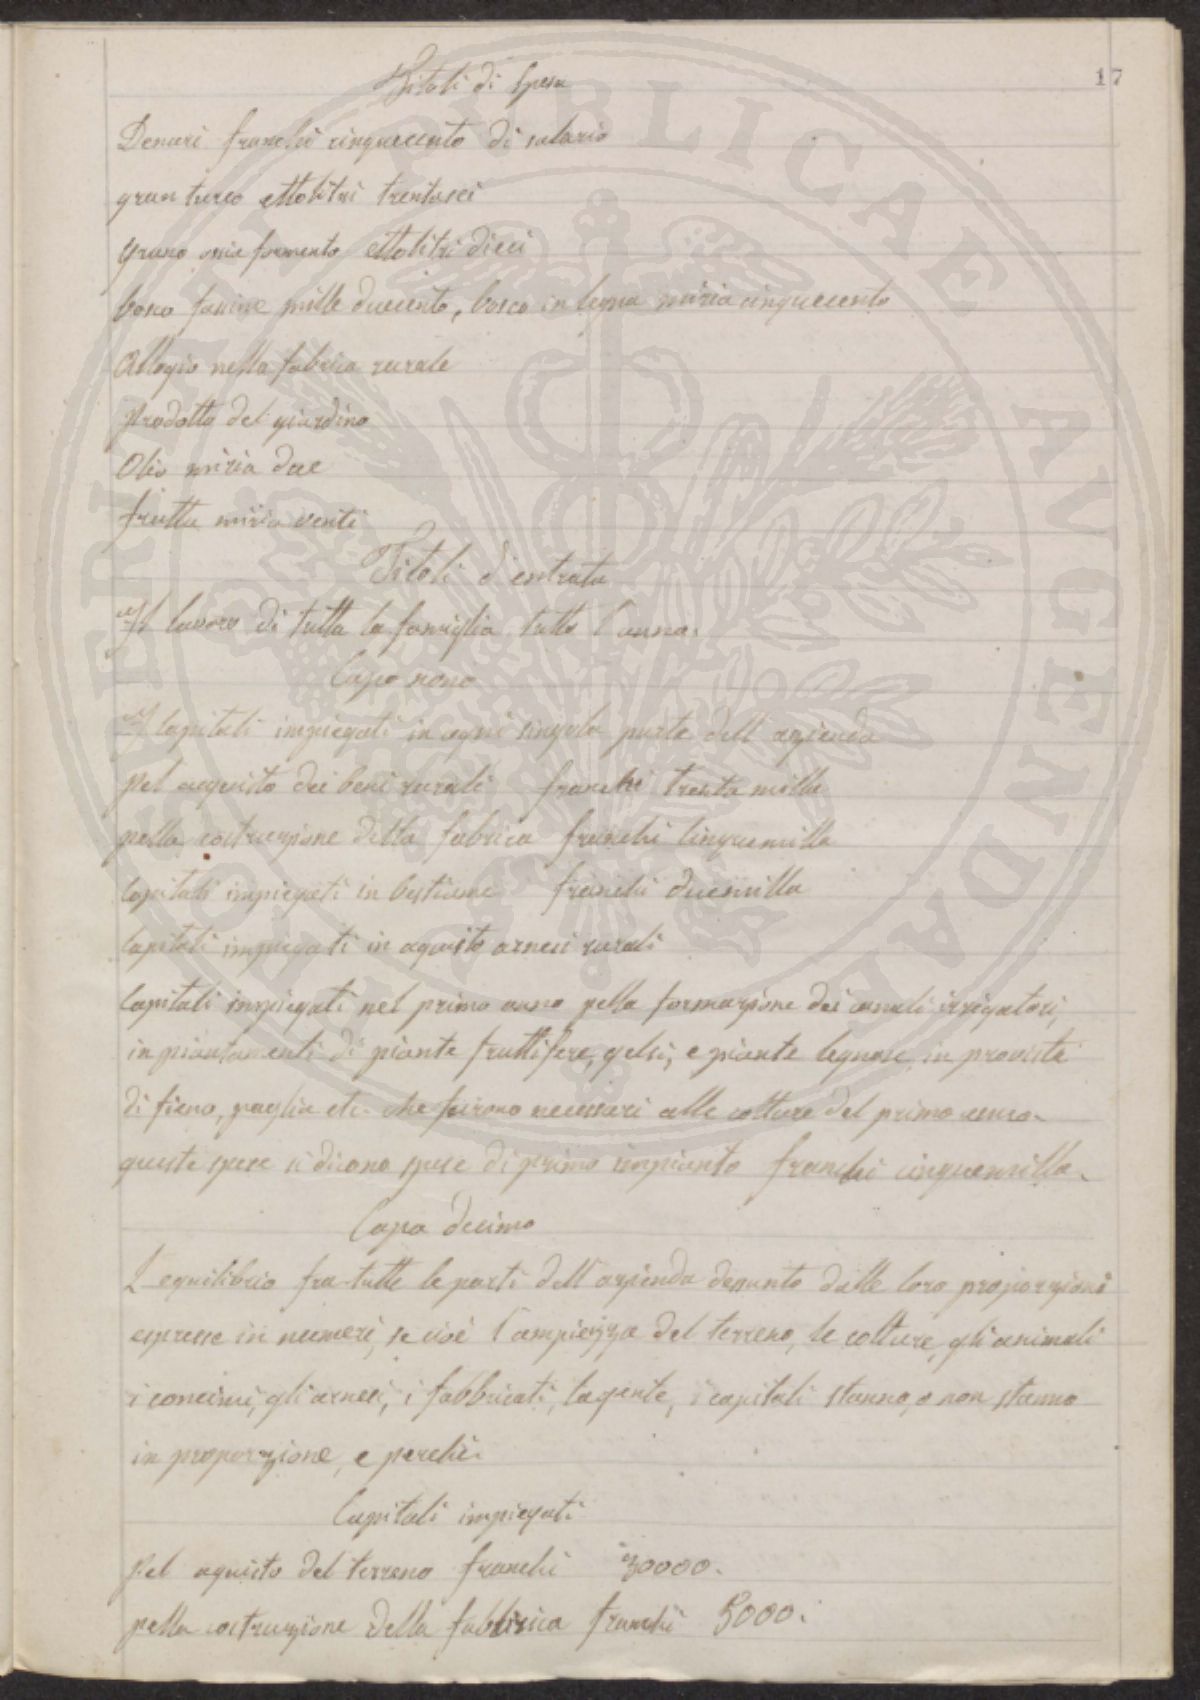 17
Titoli di spesa
Denari franchi cinquecento di salario
gran turco ettolitri trentasei
grano ossia formento ettolitri dieci
bosco fassine mille duecento, bosco in legna miria cinquecento
Allogio nella fabrica rurale
prodotto del giardino
Olio miria due
frutta miria venti
Titoli d'entrata
Il lavoro di tutta la famiglia tutto l'anno.
Capo nono
I Capitali impiegati in ogni singola parte dell'azienda
Pel acquisto dei beni rurali franchi trenta milla
pella costruzione della fabrica franchi cinquemilla
Capitali impiegati in bestiame franchi duemilla
Capitali impiegati in aquisto arnesi rurali
Capitali impiegati nel primo anno pella formazione dei canali irrigatori,
in piantamenti di piante fruttifere, gelsi, e piante legnose, in provista
di fieno, paglia etc. che furono necessari alle colture del primo anno.
queste spese si dicono spese di primo impianto franchi cinquemilla.
Capo decimo
L'equilibrio fra tutte le parti dell'azienda desunto dalle loro proporzioni
espresse in numeri, se cioè l'ampiezza del terreno, le colture, gli animali
i concimi, gli arnesi, i fabbricati, la gente, i capitali stanno, o non stanno
in proporzione, e perchè.
Capitali impiegati
Pel aquisto del terreno franchi 30000.
pella costruzione della fabbrica franchi 5000.
PUBLICAE AVGENDAE